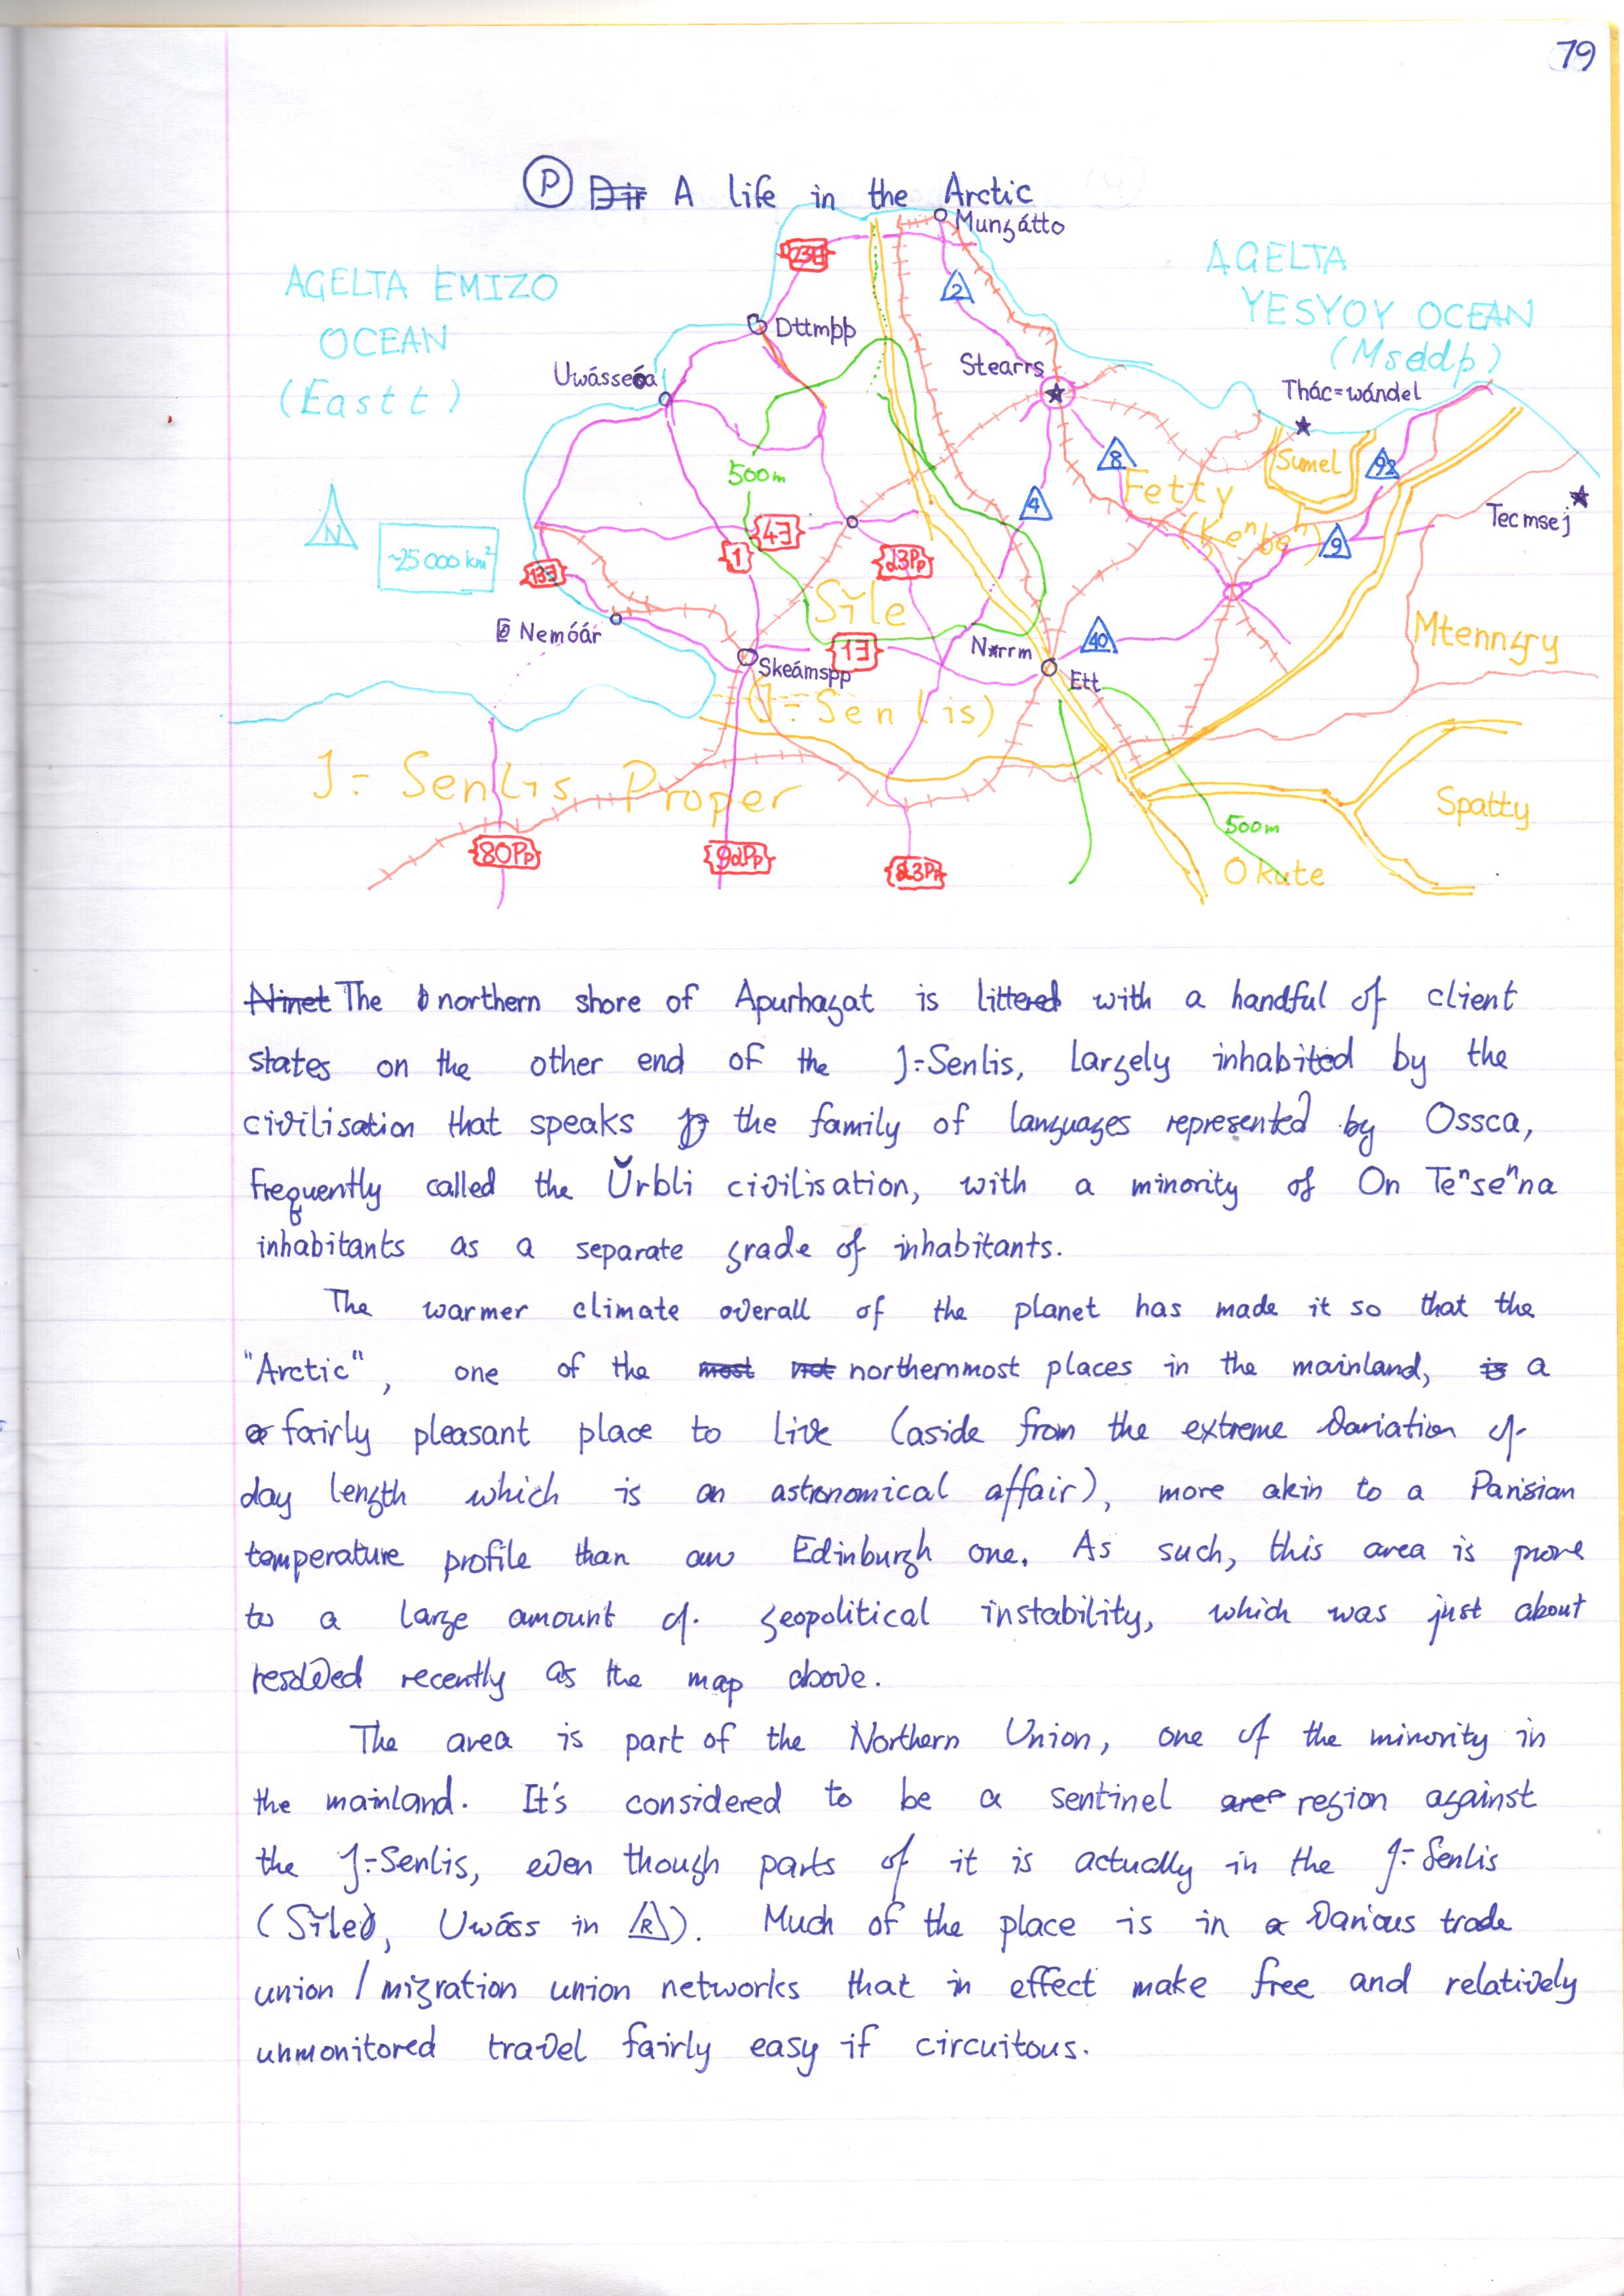 79
Ⓟ A life in the Arctic
Mungátto
23E
AGELTA EMIZO
OCEAN
(Eastt)
AGELTA
YESYOY OCEAN
(Msddþ)
2
Dttmþþ
Uwásseóa
Stearrs
Thác=wándel
500m
8
Sumel
92
Fetty
(Keⁿbeⁿ)
4
9
Tecmsej
N
~25 000 km²
1
4Ǝ
13Ǝ
d3Pp
Sĭle
Nemóár
Skeámspp
1Ǝ
Nxrrm
40
Ett
Mtenngry
(J=Senlis)
J=Senlis Proper
Spatty
500m
80Pp
9dPp
d3Pp
Okute
The northern shore of Apurhagat is littered with a handful of client
states on the other end of the J=Senlis, largely inhabited by the
civilisation that speaks the family of languages represented by Ossca,
frequently called the Ŭrbli civilisation, with a minority of On Teⁿseⁿna
inhabitants as a separate grade of inhabitants.
The warmer climate overall of the planet has made it so that the
"Arctic", one of the northernmost places in the mainland, a
fairly pleasant place to live (aside from the extreme variation of
day length which is an astronomical affair), more akin to a Parisian
temperature profile than an Edinburgh one. As such, this area is prone
to a large amount of geopolitical instability, which was just about
resolved recently as the map above.
The area is part of the Northern Union, one of the minority in
the mainland. It's considered to be a sentinel region against
the J=Senlis, even though parts of it is actually in the J=Senlis
(Sĭle, Uwáss in R). Much of the place is in various trade
union / migration union networks that in effect make free and relatively
unmonitored travel fairly easy if circuitous.